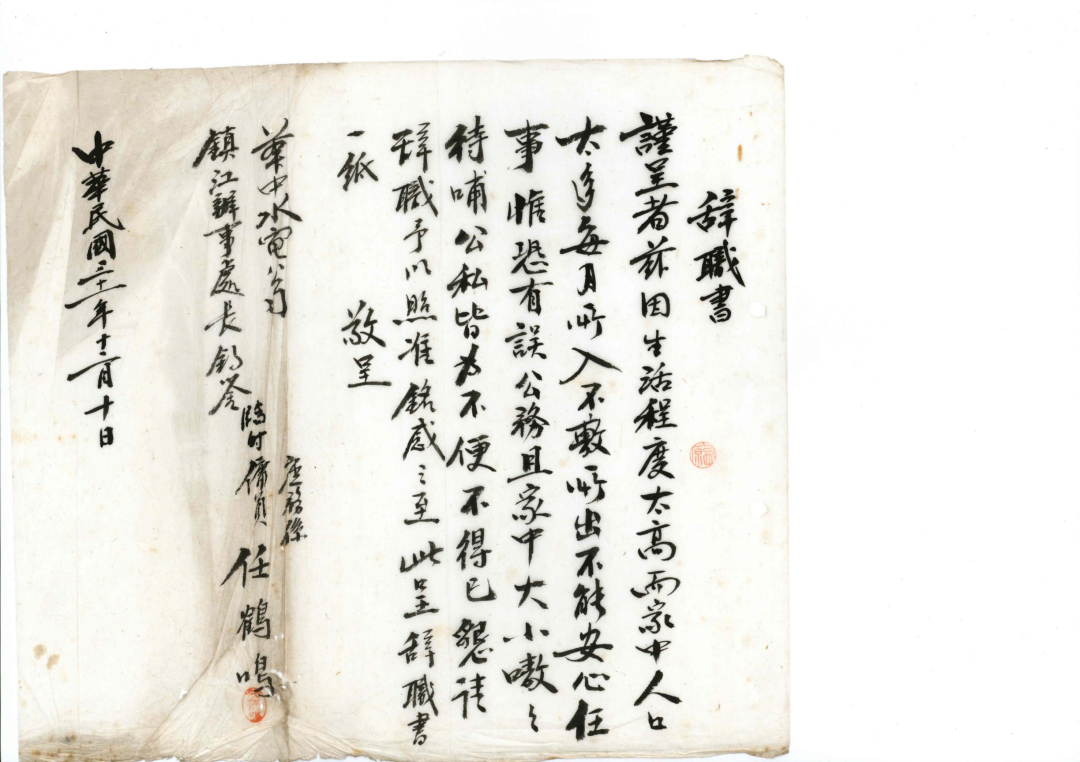 辭職書
謹呈者茲因生活程度太高而家中人口
太多每月所入不敷所出不能安心任
事惟恐有誤公務且家中大小嗷々
待哺公私皆為不便不得已懇請
辞職予以照准銘感之至此呈辞職書
一紙　敬呈
華中水電公司
鎮江辦事處長鈞鑒
庶務係
臨時傭員　任鶴鳴
中華民國三十一年十二月十日